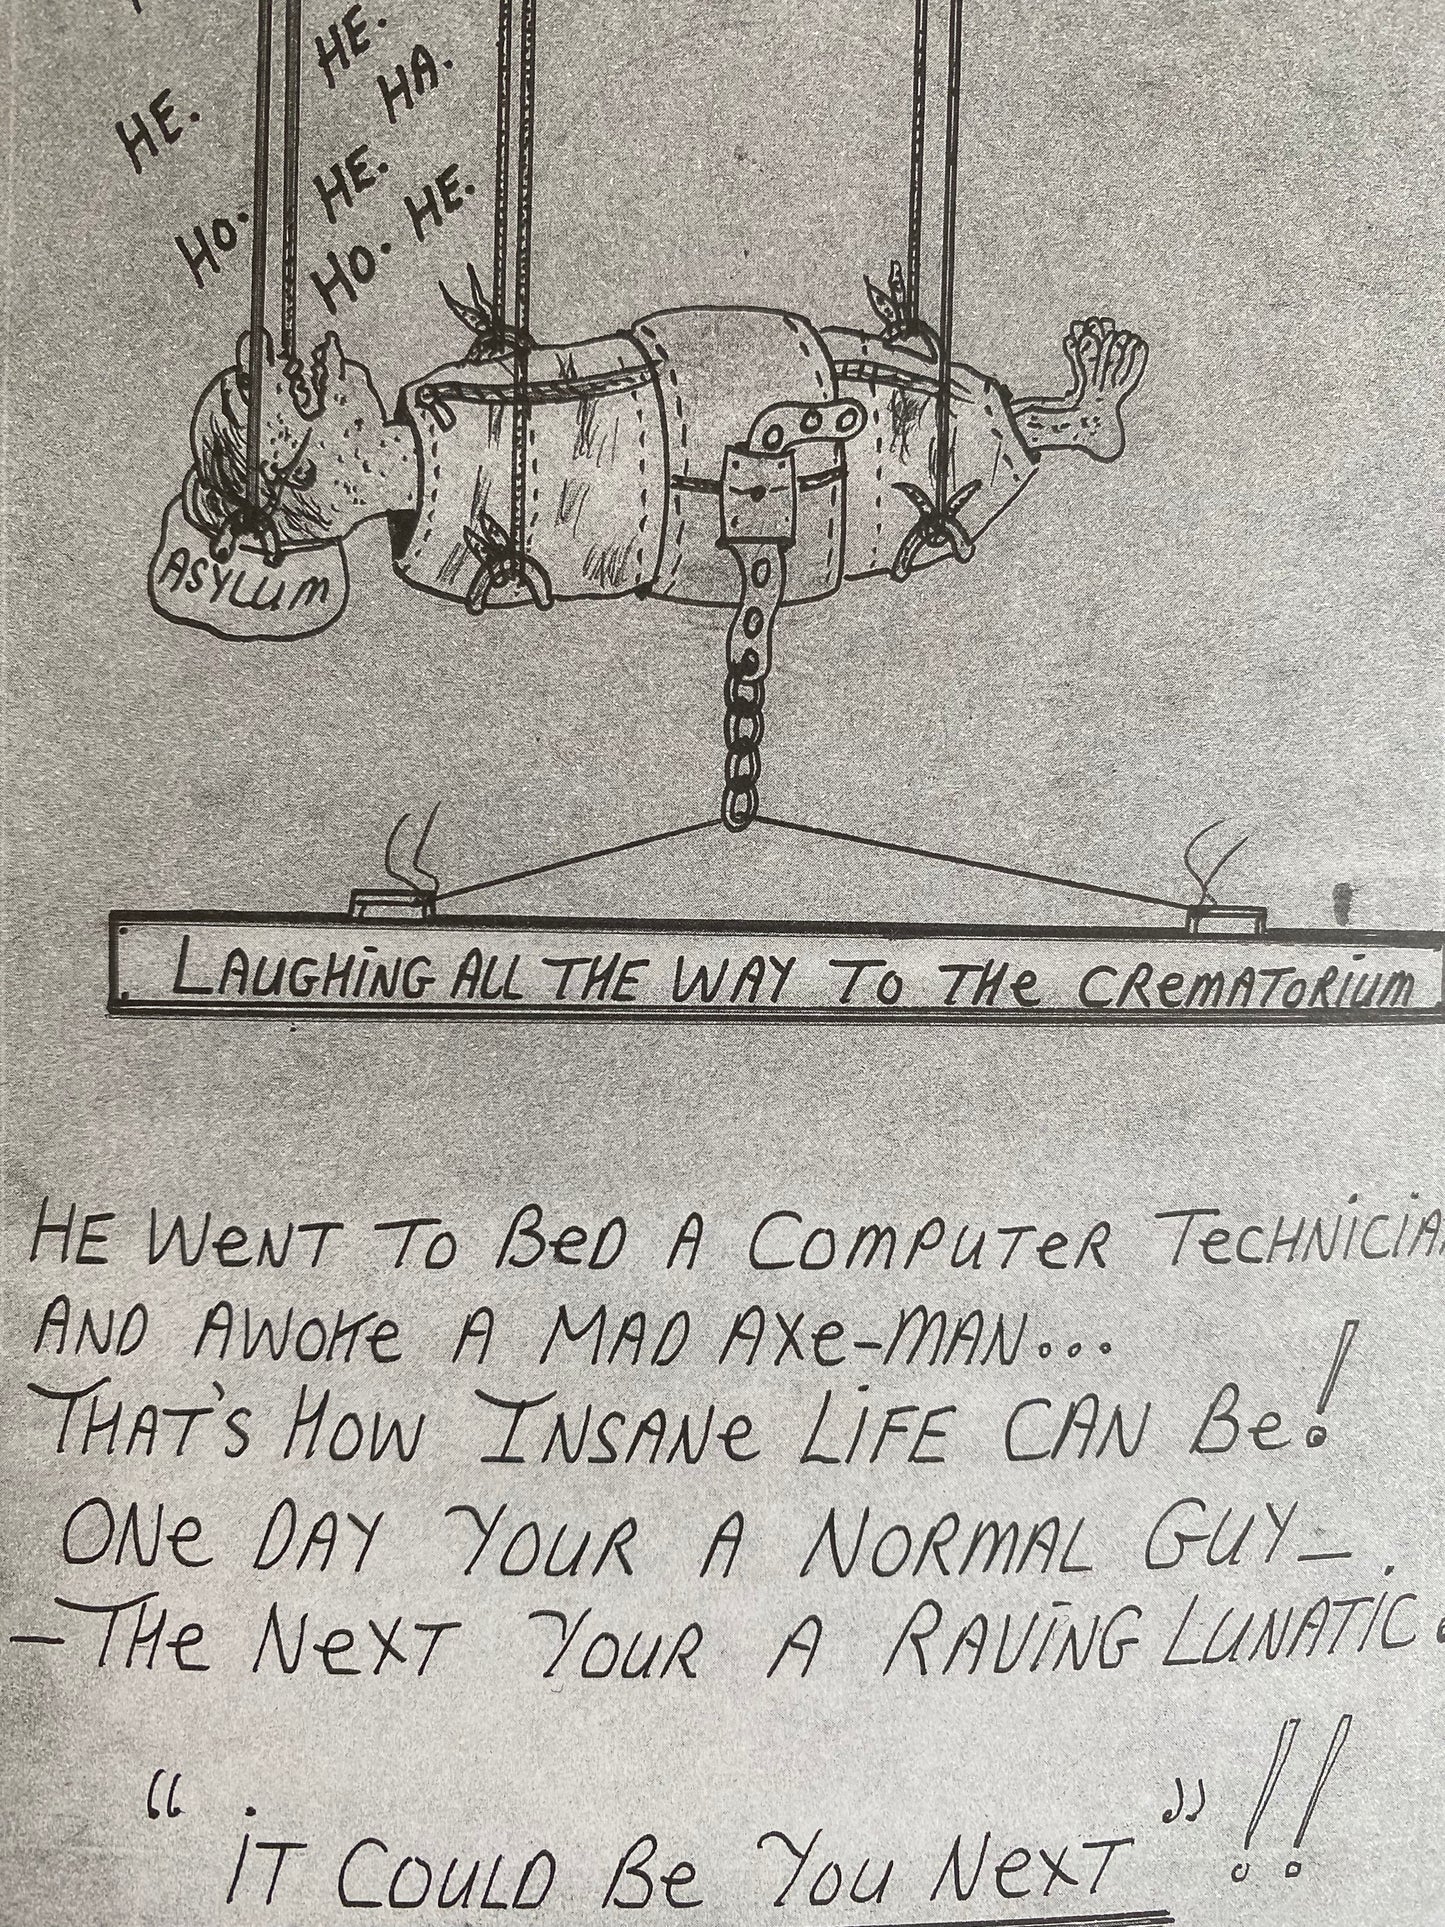 HE.
HA.
HE.
HE.
HO.
HE.
HO.
ASYLUM
LAUGHING ALL THE WAY TO THe CReMATORiUM
HE WeNT TO BeD A COMPUTeR TeCHNiCiA
AND AWOKe A MAD AXe-MAN...
THAT'S HOW INSANe LiFE CAN Be!
ONe DAY YOUR A NORMAL GUY—
—THe NeXT YOUR A RAViNG LUNATiC.
“iT COULD Be YOU NeXT”!!